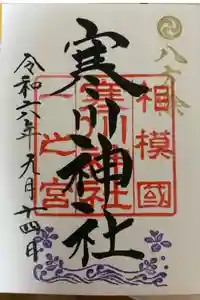 八方除
相模國
一之宮
寒川神社
寒川神社
令和六年